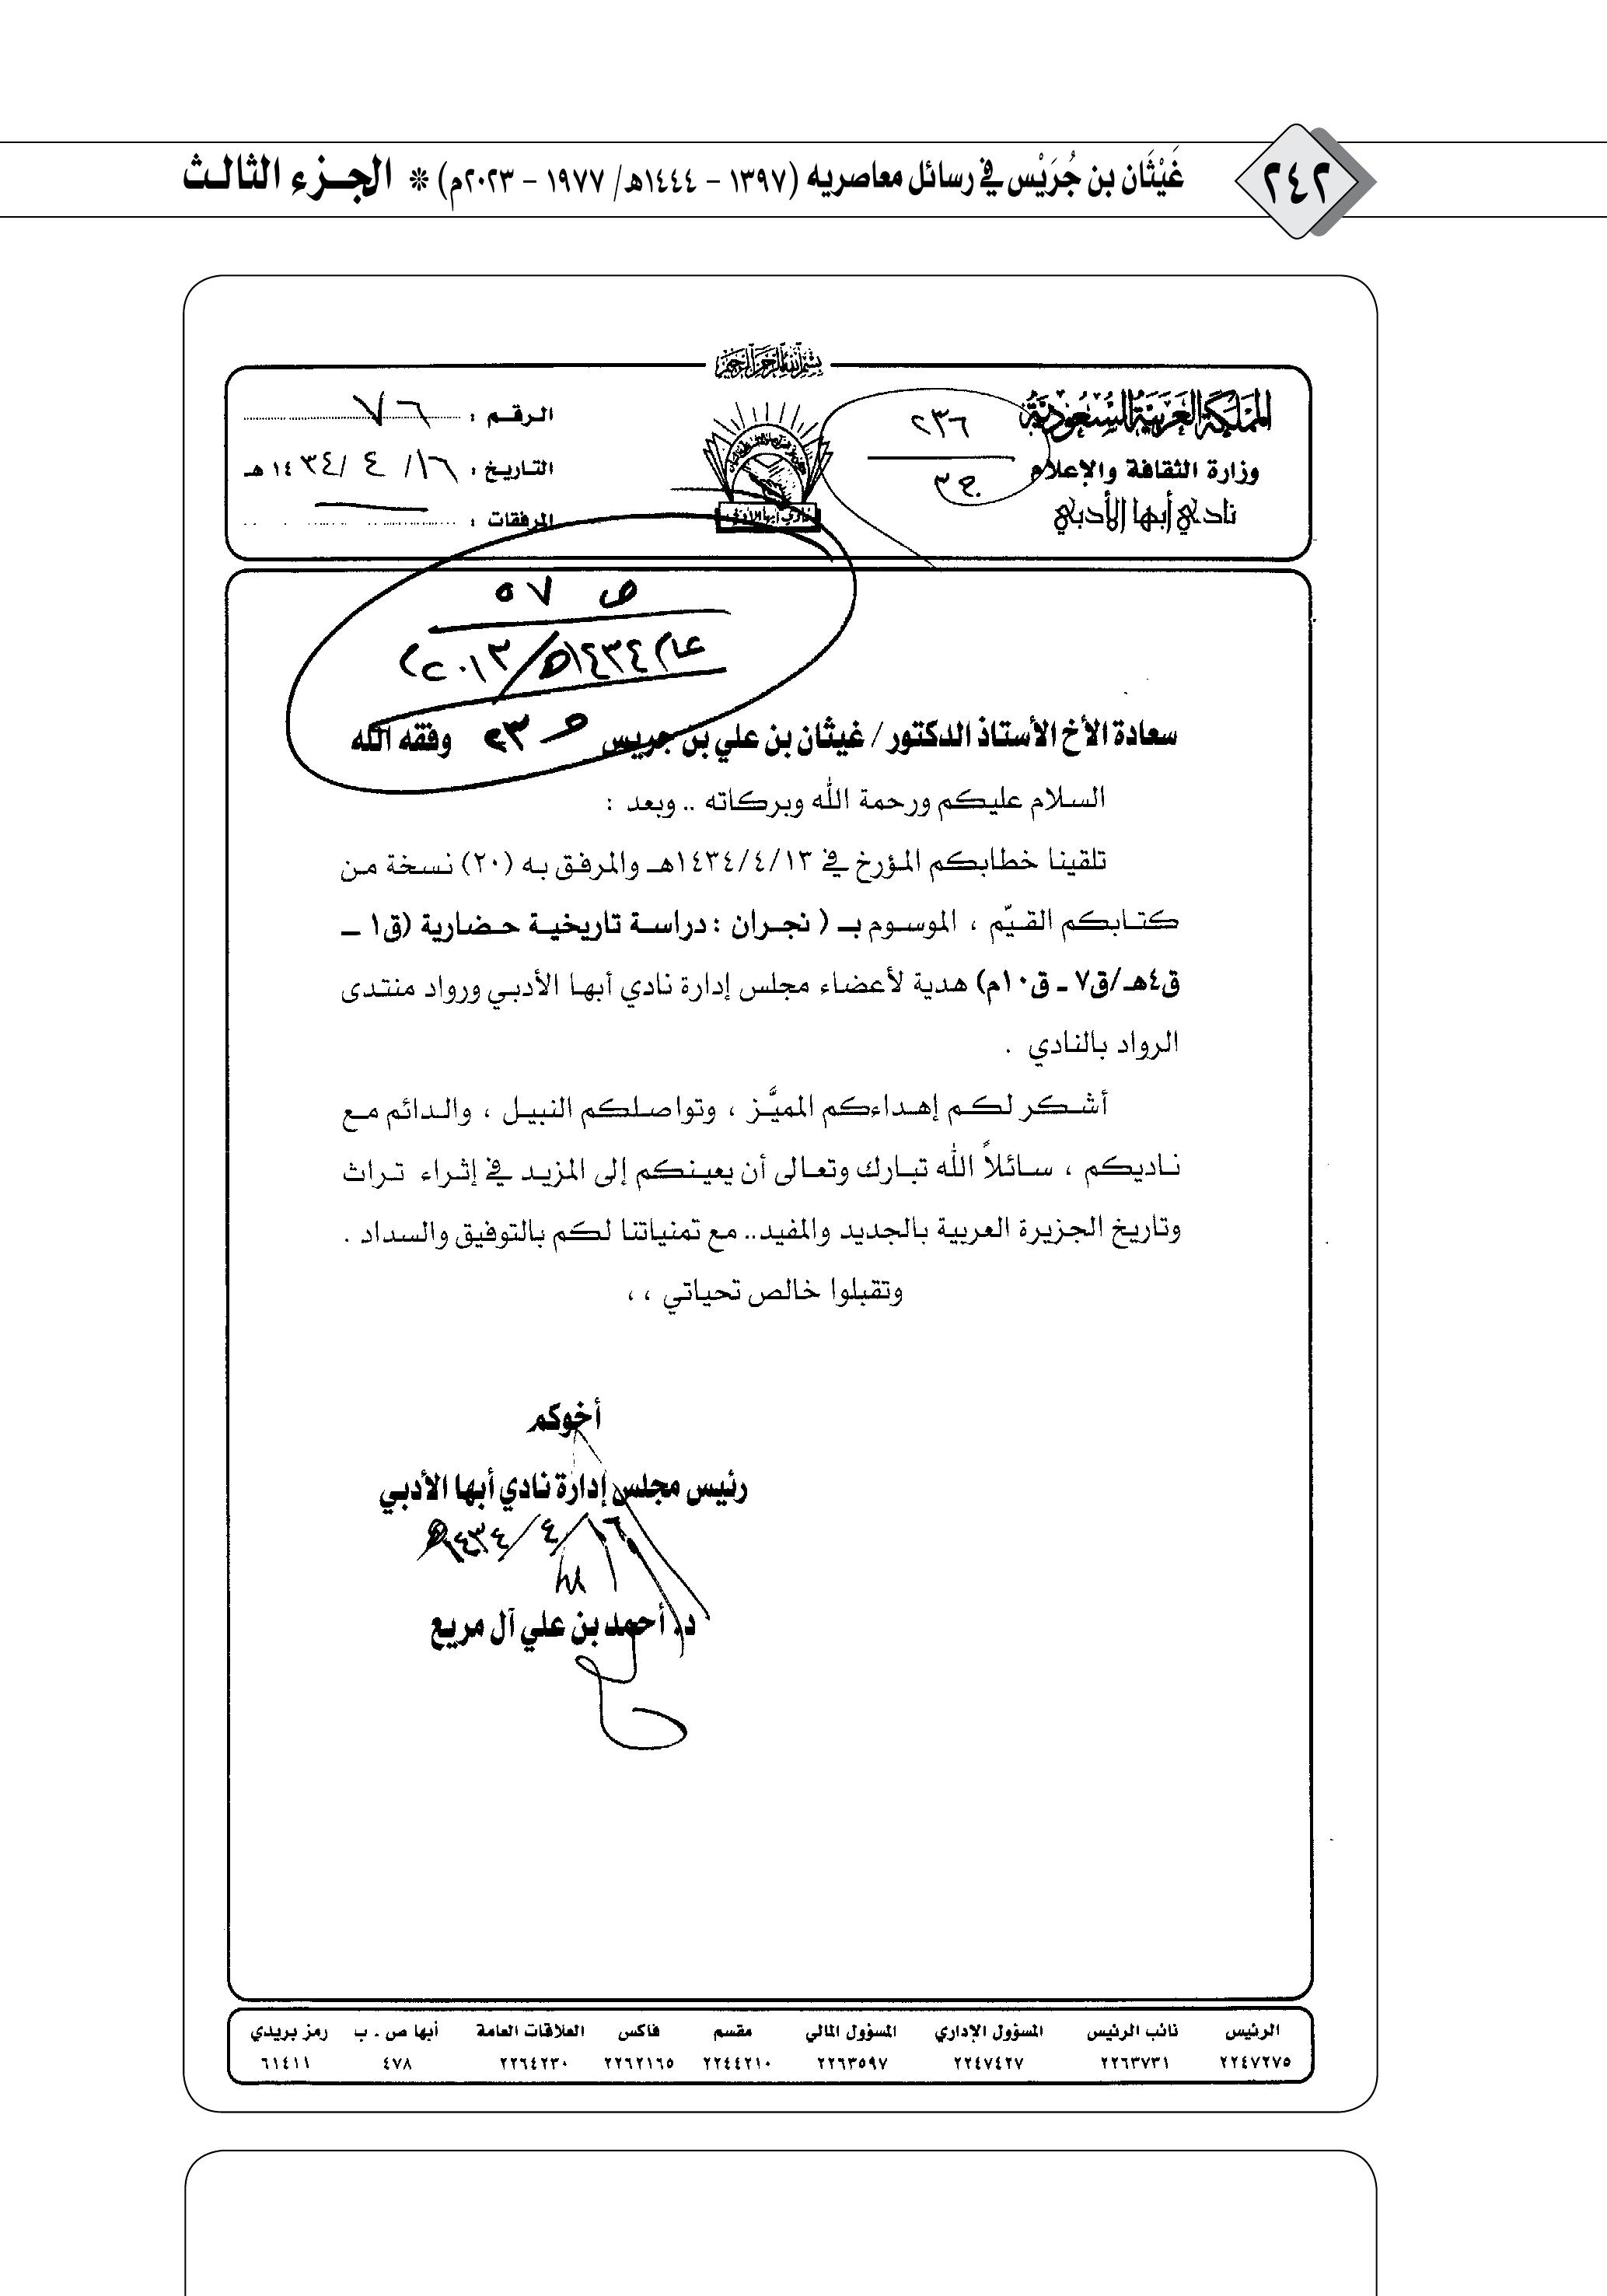 ٢٤٢
غَيْثَان بن جُرَيْس في رسائل معاصريه (١٣٩٧ - ١٤٤٤هـ/ ١٩٧٧ - ٢٠٢٣م) * الجزء الثالث
بسم الله الرحمن الرحيم
المملكة العربية السعودية
وزارة الثقافة والإعلام
نادي أبها الأدبي
٢٣٦
ج ٣
نادي أبها الأدبي
الرقم : ٧٦
التاريخ : ١٦/ ٤ /١٤٣٤هـ
المرفقات :
ص ٥٧
عام ١٤٣٤هـ/٢٠١٣م
سعادة الأخ الأستاذ الدكتور/ غيثان بن علي بن جريس وفقه الله
السلام عليكم ورحمة الله وبركاته .. وبعد :
تلقينا خطابكم المؤرخ في ١٤٣٤/٤/١٣هـ والمرفق به (٢٠) نسخة من
كتابكم القيّم ، الموسوم بـ ( نجران : دراسة تاريخية حضارية (ق١ ـ
ق٤هـ/ق٧ ـ ق١٠م) هدية لأعضاء مجلس إدارة نادي أبها الأدبي ورواد منتدى
الرواد بالنادي .
أشكر لكم إهداءكم المميَّز ، وتواصلكم النبيل ، والدائم مع
ناديكم ، سائلاً الله تبارك وتعالى أن يعينكم إلى المزيد في إثراء تراث
وتاريخ الجزيرة العربية بالجديد والمفيد.. مع تمنياتنا لكم بالتوفيق والسداد .
وتقبلوا خالص تحياتي ، ،
أخوكم
رئيس مجلس إدارة نادي أبها الأدبي
١٦/ ٤ /١٤٣٤هـ
د. أحمد بن علي آل مريع
الرئيس نائب الرئيس المسؤول الإداري المسؤول المالي مقسم فاكس العلاقات العامة أبها ص . ب رمز بريدي
٢٢٤٧٢٧٥ ٢٢٦٣٧٣١ ٢٢٤٧٤٢٧ ٢٢٦٣٥٩٧ ٢٢٤٤٢١٠ ٢٢٦٢١٦٥ ٢٢٦٤٢٣٠ ٤٧٨ ٦١٤١١